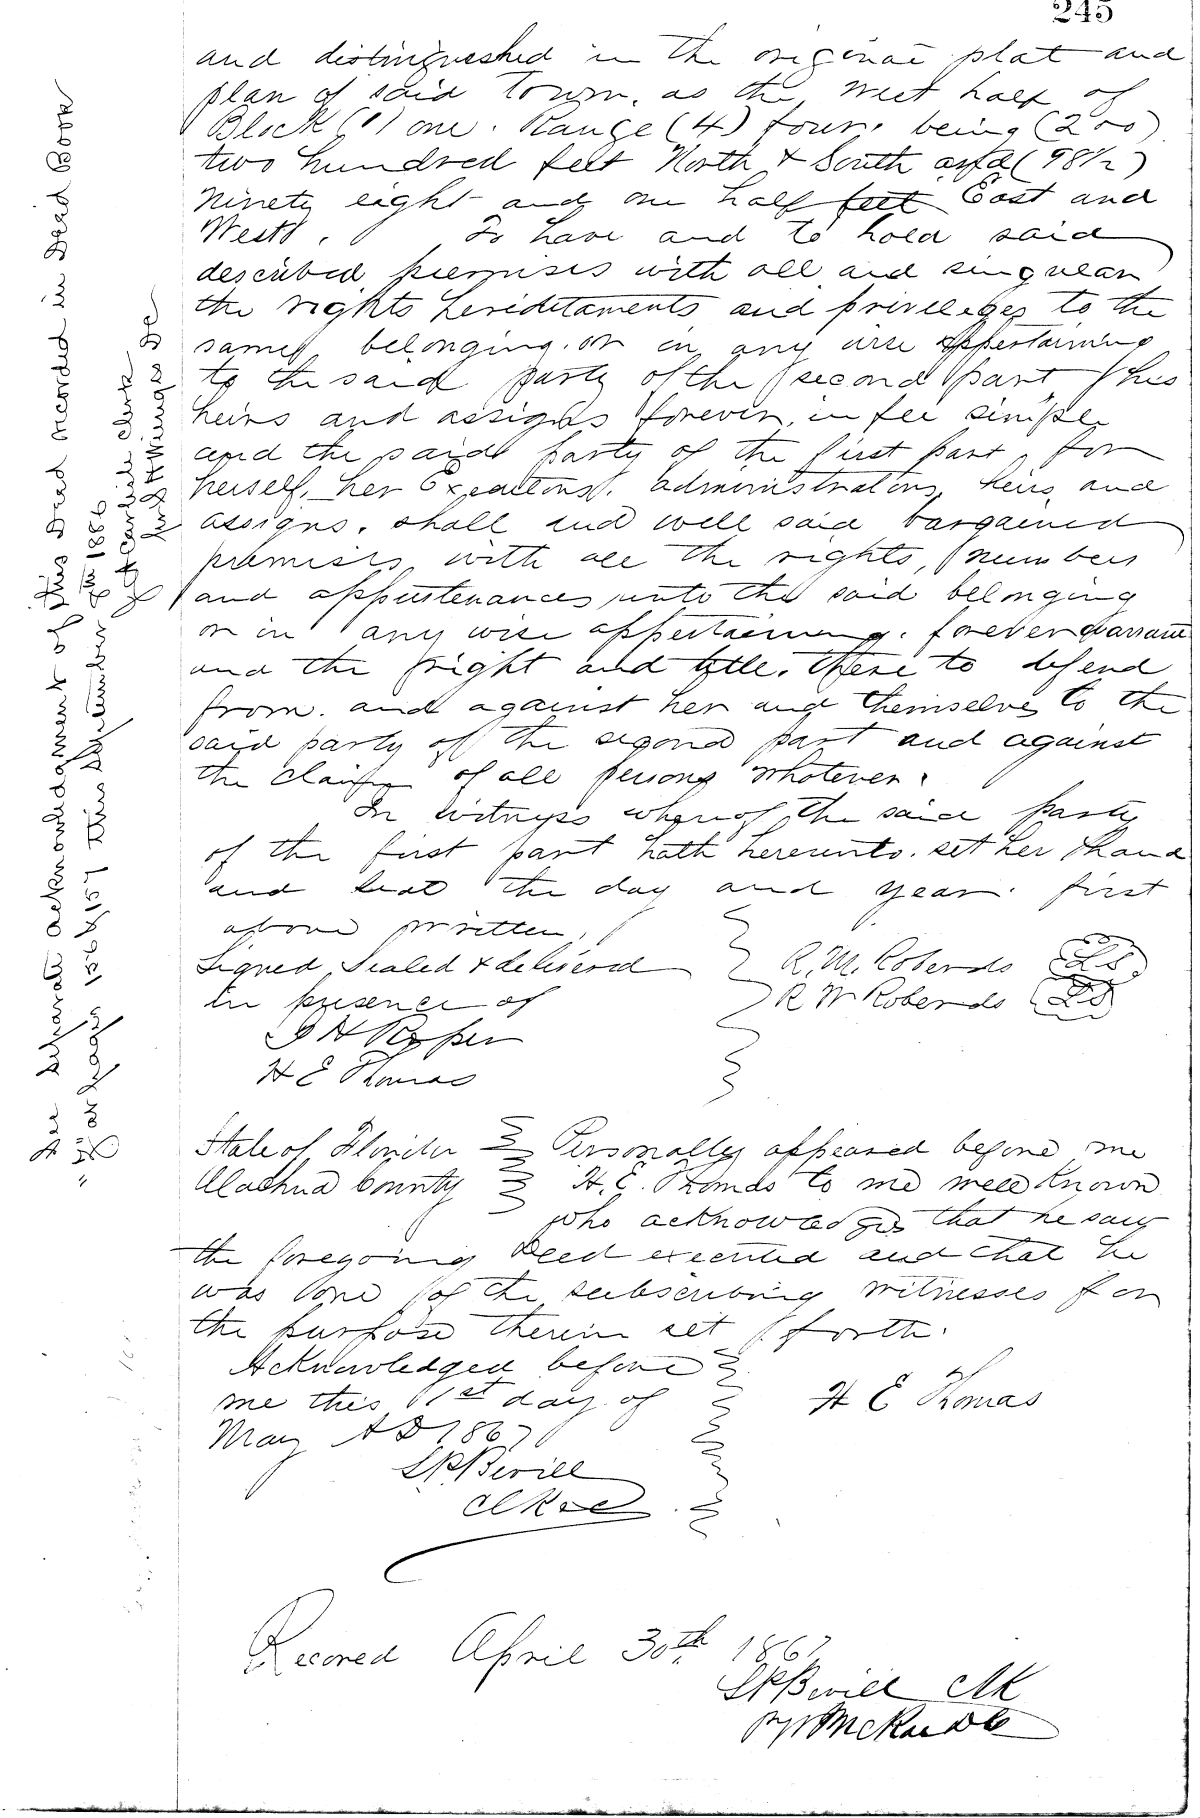 245
and distinguished in the original plat and
plan of said Town, as the West half of
Block (1) one. Range (4) four. being (200)
two hundred feet North & South and (98½)
Ninety eight and one half feet East and
West. To have and to hold said
described premises with all and singular
the rights hereditaments and privileges to the
same belonging or in any wise appertaining
to the said party of the second part his
heirs and assigns forever, in fee simple
and the said party of the first part, for
herself, her Executors, administrators, heirs and
assigns. shall and will said bargained
premises with all the rights, members
and appurtenances unto the said belonging
or in any wise appertaining. forever warrant
and the right and title. there to defend
from. and against her and themselves to the
said party of the second part and against
the claim of all persons whatever.
In witness whereof the said party
of the first part hath hereunto. set her hand
and seal the day and year. first
above written,
Signed, Sealed & delivered R. M. Roberds LS
in presence of R W Roberds LS
H Roper
H E Thomas
State of Florida Personally appeared before me
Alachua County H. E. Thomas to me well Known
who acknowledges that he saw
the foregoing Deed executed and that he
was one of the subscribing witnesses for
the purpose therein set forth.
Acknowledged before
me this 1st day of H E Thomas
May AD 1867
S P Bevill
Clk
Recored April 30th 1867
S P Bevill Clk
McKee DC
acknowledgment of this Deed recorded in Deed Book
page 157 this September 1886